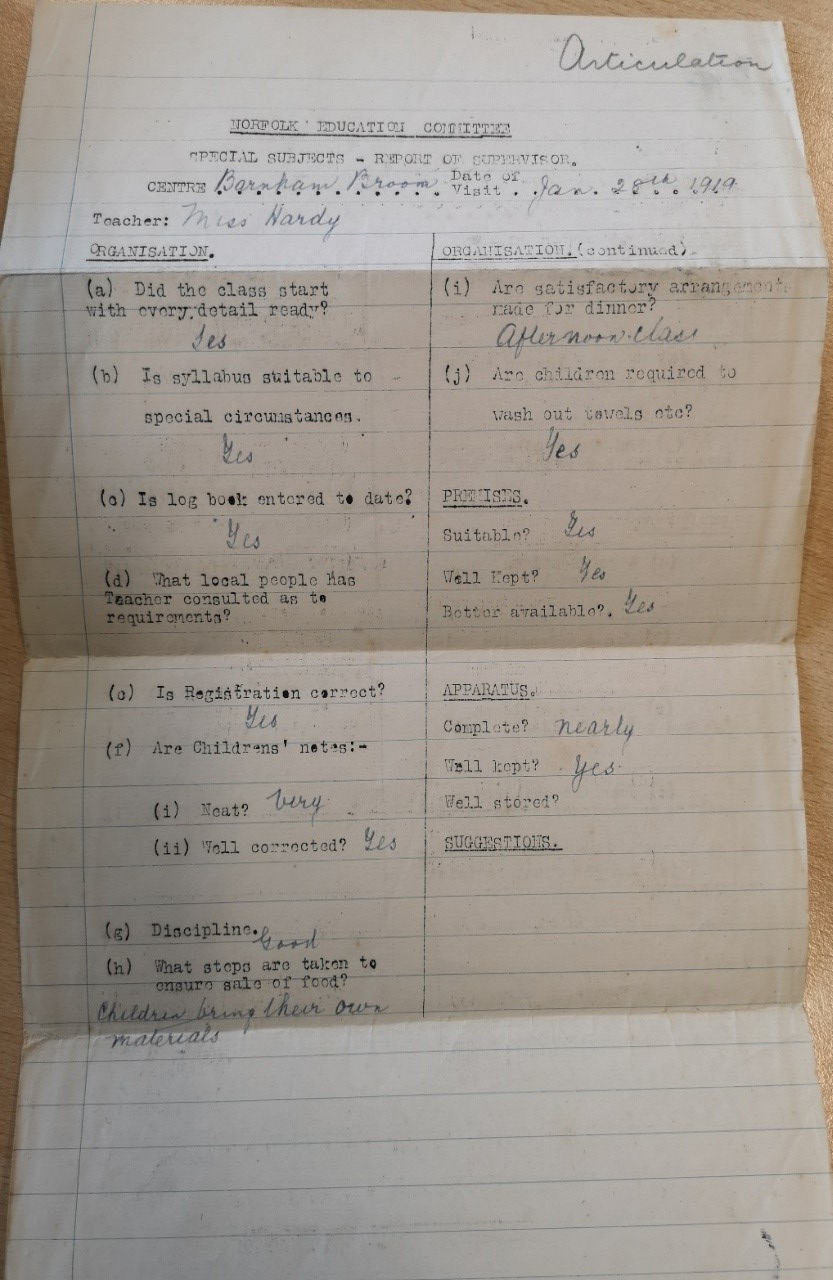 Articulation
NORFOLK EDUCATION COMMITTEE
SPECIAL SUBJECTS - REPORT OF SUPERVISOR.
CENTRE Barnham Broom Date of Visit. Jan. 28th. 1919
Teacher: Miss Hardy
ORGANISATION.
(a) Did the class start
with every detail ready?
Yes
(b) Is syllabus suitable to
special circumstances.
Yes
(c) Is log book entered to date?
Yes
(d) What local people Has
Teacher consulted as to
requirements?
(e) Is Registration correct?
Yes
(f) Are Childrens' notes:-
(i) Neat? Very
(ii) Well corrected? Yes
(g) Discipline. Good
(h) What steps are taken to
ensure sale of food?
Children bring their own
materials
ORGANISATION. (continued).
(i) Are satisfactory arrangements
made for dinner?
Afternoon class
(j) Are children required to
wash out towels etc?
Yes
PREMISES.
Suitable? Yes
Well Kept? Yes
Better available?. Yes
APPARATUS.
Complete? nearly
Well kept? Yes.
Well stored?
SUGGESTIONS.